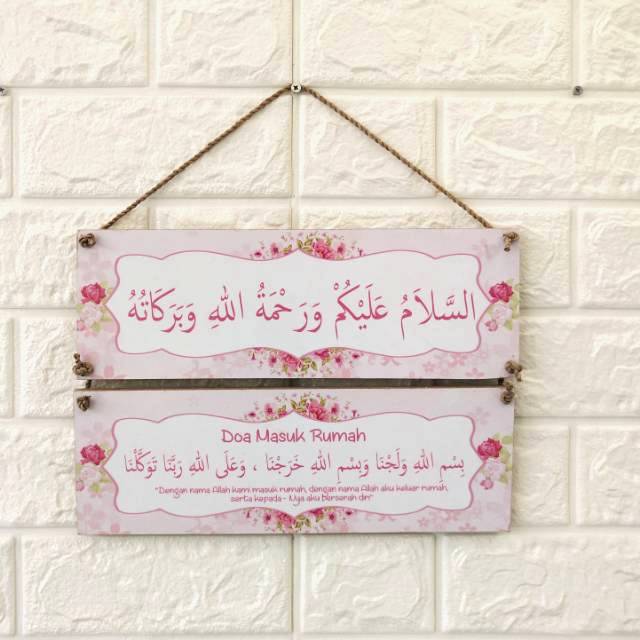 السَّلاَمُ عَلَيْكُمْ وَرَحْمَةُ اللهِ وَبَرَكَاتُهُ
Doa Masuk Rumah
بِسْمِ اللهِ وَلَجْنَا وَبِسْمِ اللهِ خَرَجْنَا ، وَعَلَى اللهِ رَبَّنَا تَوَكَّلْنَا
"Dengan nama Allah kami masuk rumah, dengan nama Allah aku keluar rumah,
serta kepada - Nya aku berserah diri"